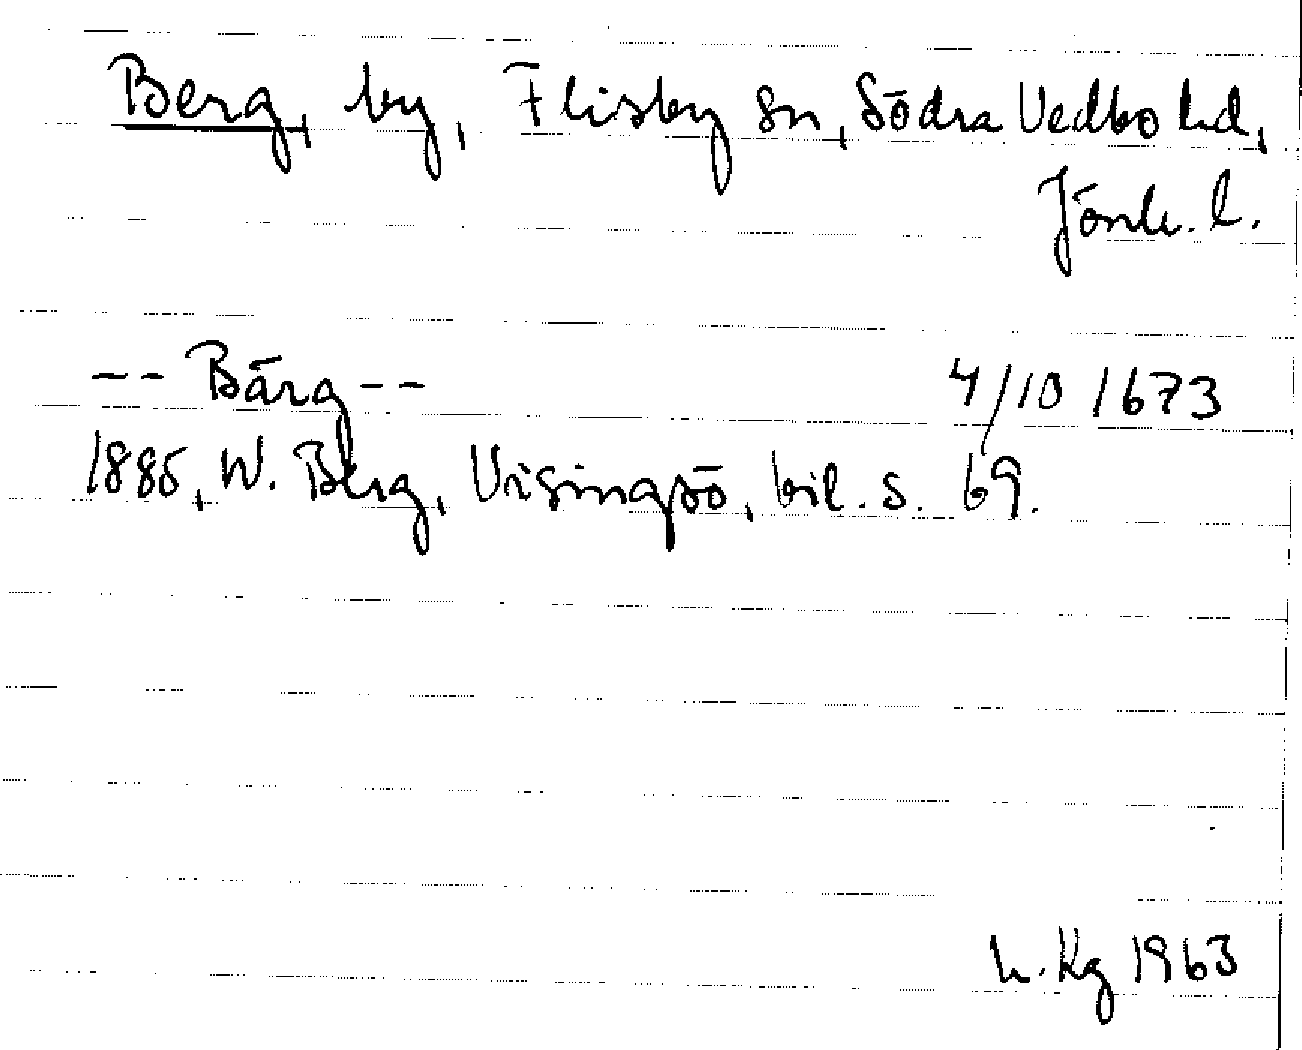 Berg, by, Flisby sn, Södra Vedbo hd,
Jönk. l.
-- Bärg -- 4/10 1673
1885, W. Berg, Visingsö, bil. s. 69.
h. Kg 1963